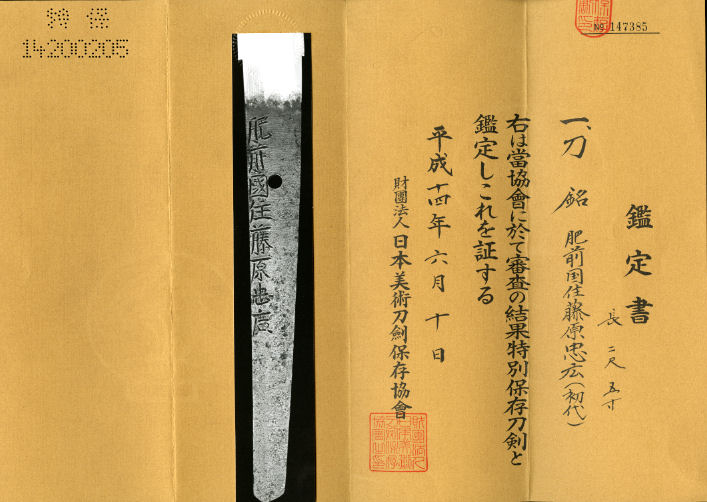 No 147385
鑑定書
一、刀 銘 肥前国住藤原忠広(初代)
長 二尺五寸
右は當協會に於て審査の結果特別保存刀剣と
鑑定しこれを証する
平成十四年六月十日
財團法人 日本美術刀劍保存協會
肥前國住藤原忠廣
特保
14200205